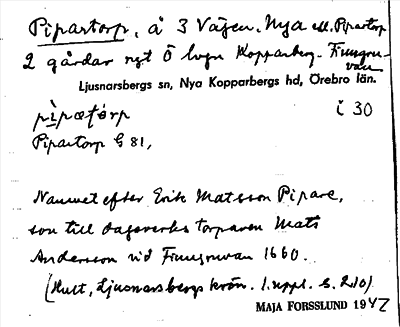 Pipartorp, å 3 Vägen. Nya ell. Pipartorp
2 gårdar nqt Ö lvgn Kopparberg - Finngru-
van
Ljusnarsbergs sn, Nya Kopparbergs hd, Örebro län.
pìpaṭórp i 30
Pipartorp G 81,
Namnet efter Erik Matsson Pipare,
son till dagsverkstorparen Mats
Andersson vid Finngruvan 1660.
(Hult, Ljusnarsbergs krön. 1. uppl. s. 210).
MAJA FORSSLUND 1942